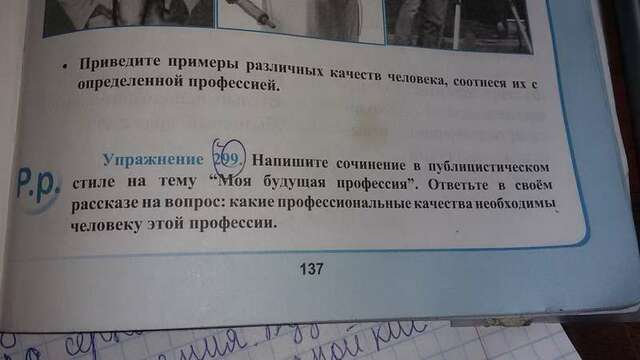 • Приведите примеры различных качеств человека, соотнеся их с
определенной профессией.
Р.р.
Упражнение 299. Напишите сочинение в публицистическом
стиле на тему “Моя будущая профессия”. Ответьте в своём
рассказе на вопрос: какие профессиональные качества необходимы
человеку этой профессии.
137